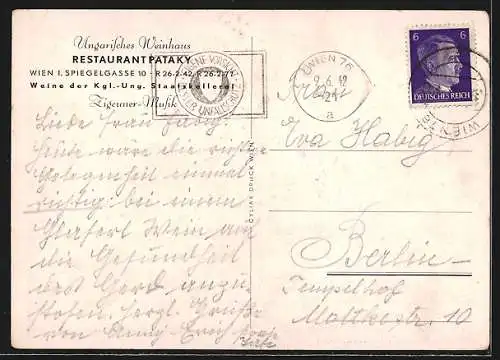 Ungarisches Weinhaus
RESTAURANT PATAKY
WIEN I, SPIEGELGASSE 10 · R 26-2-42, R 26-2-
Weine der Kgl.-Ung. Staatskellerei
Zigeuner-Musik
WIEN 76
9.6.42
a
6 6
DEUTSCHES REICH
WIEN
Liebe Frau
heute wäre die richtige
Gelegenheit einmal
richtig bei einem
Wein an
die Gesundheit
Gerd anzu
stoßen. Herzl. Grüße
von Erich
Frau
Eva Habig
Berlin-
Tempelhof
Moltkestr. 10
DRUCK WIEN